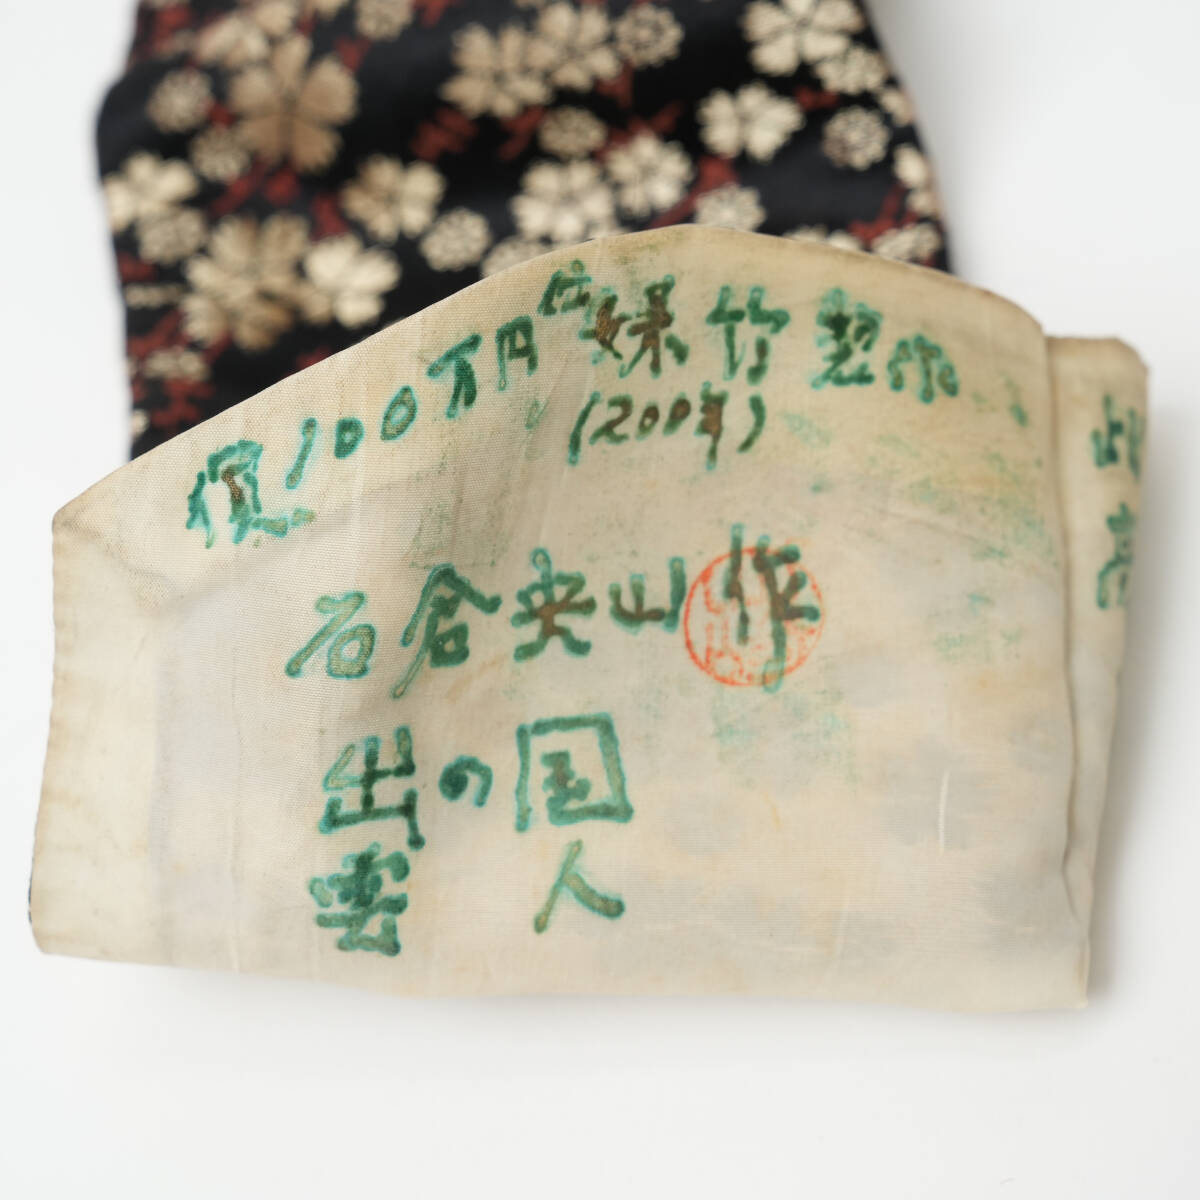 價100万円位 煤竹製作
(200年)
石倉央山作
出の国
雲 人